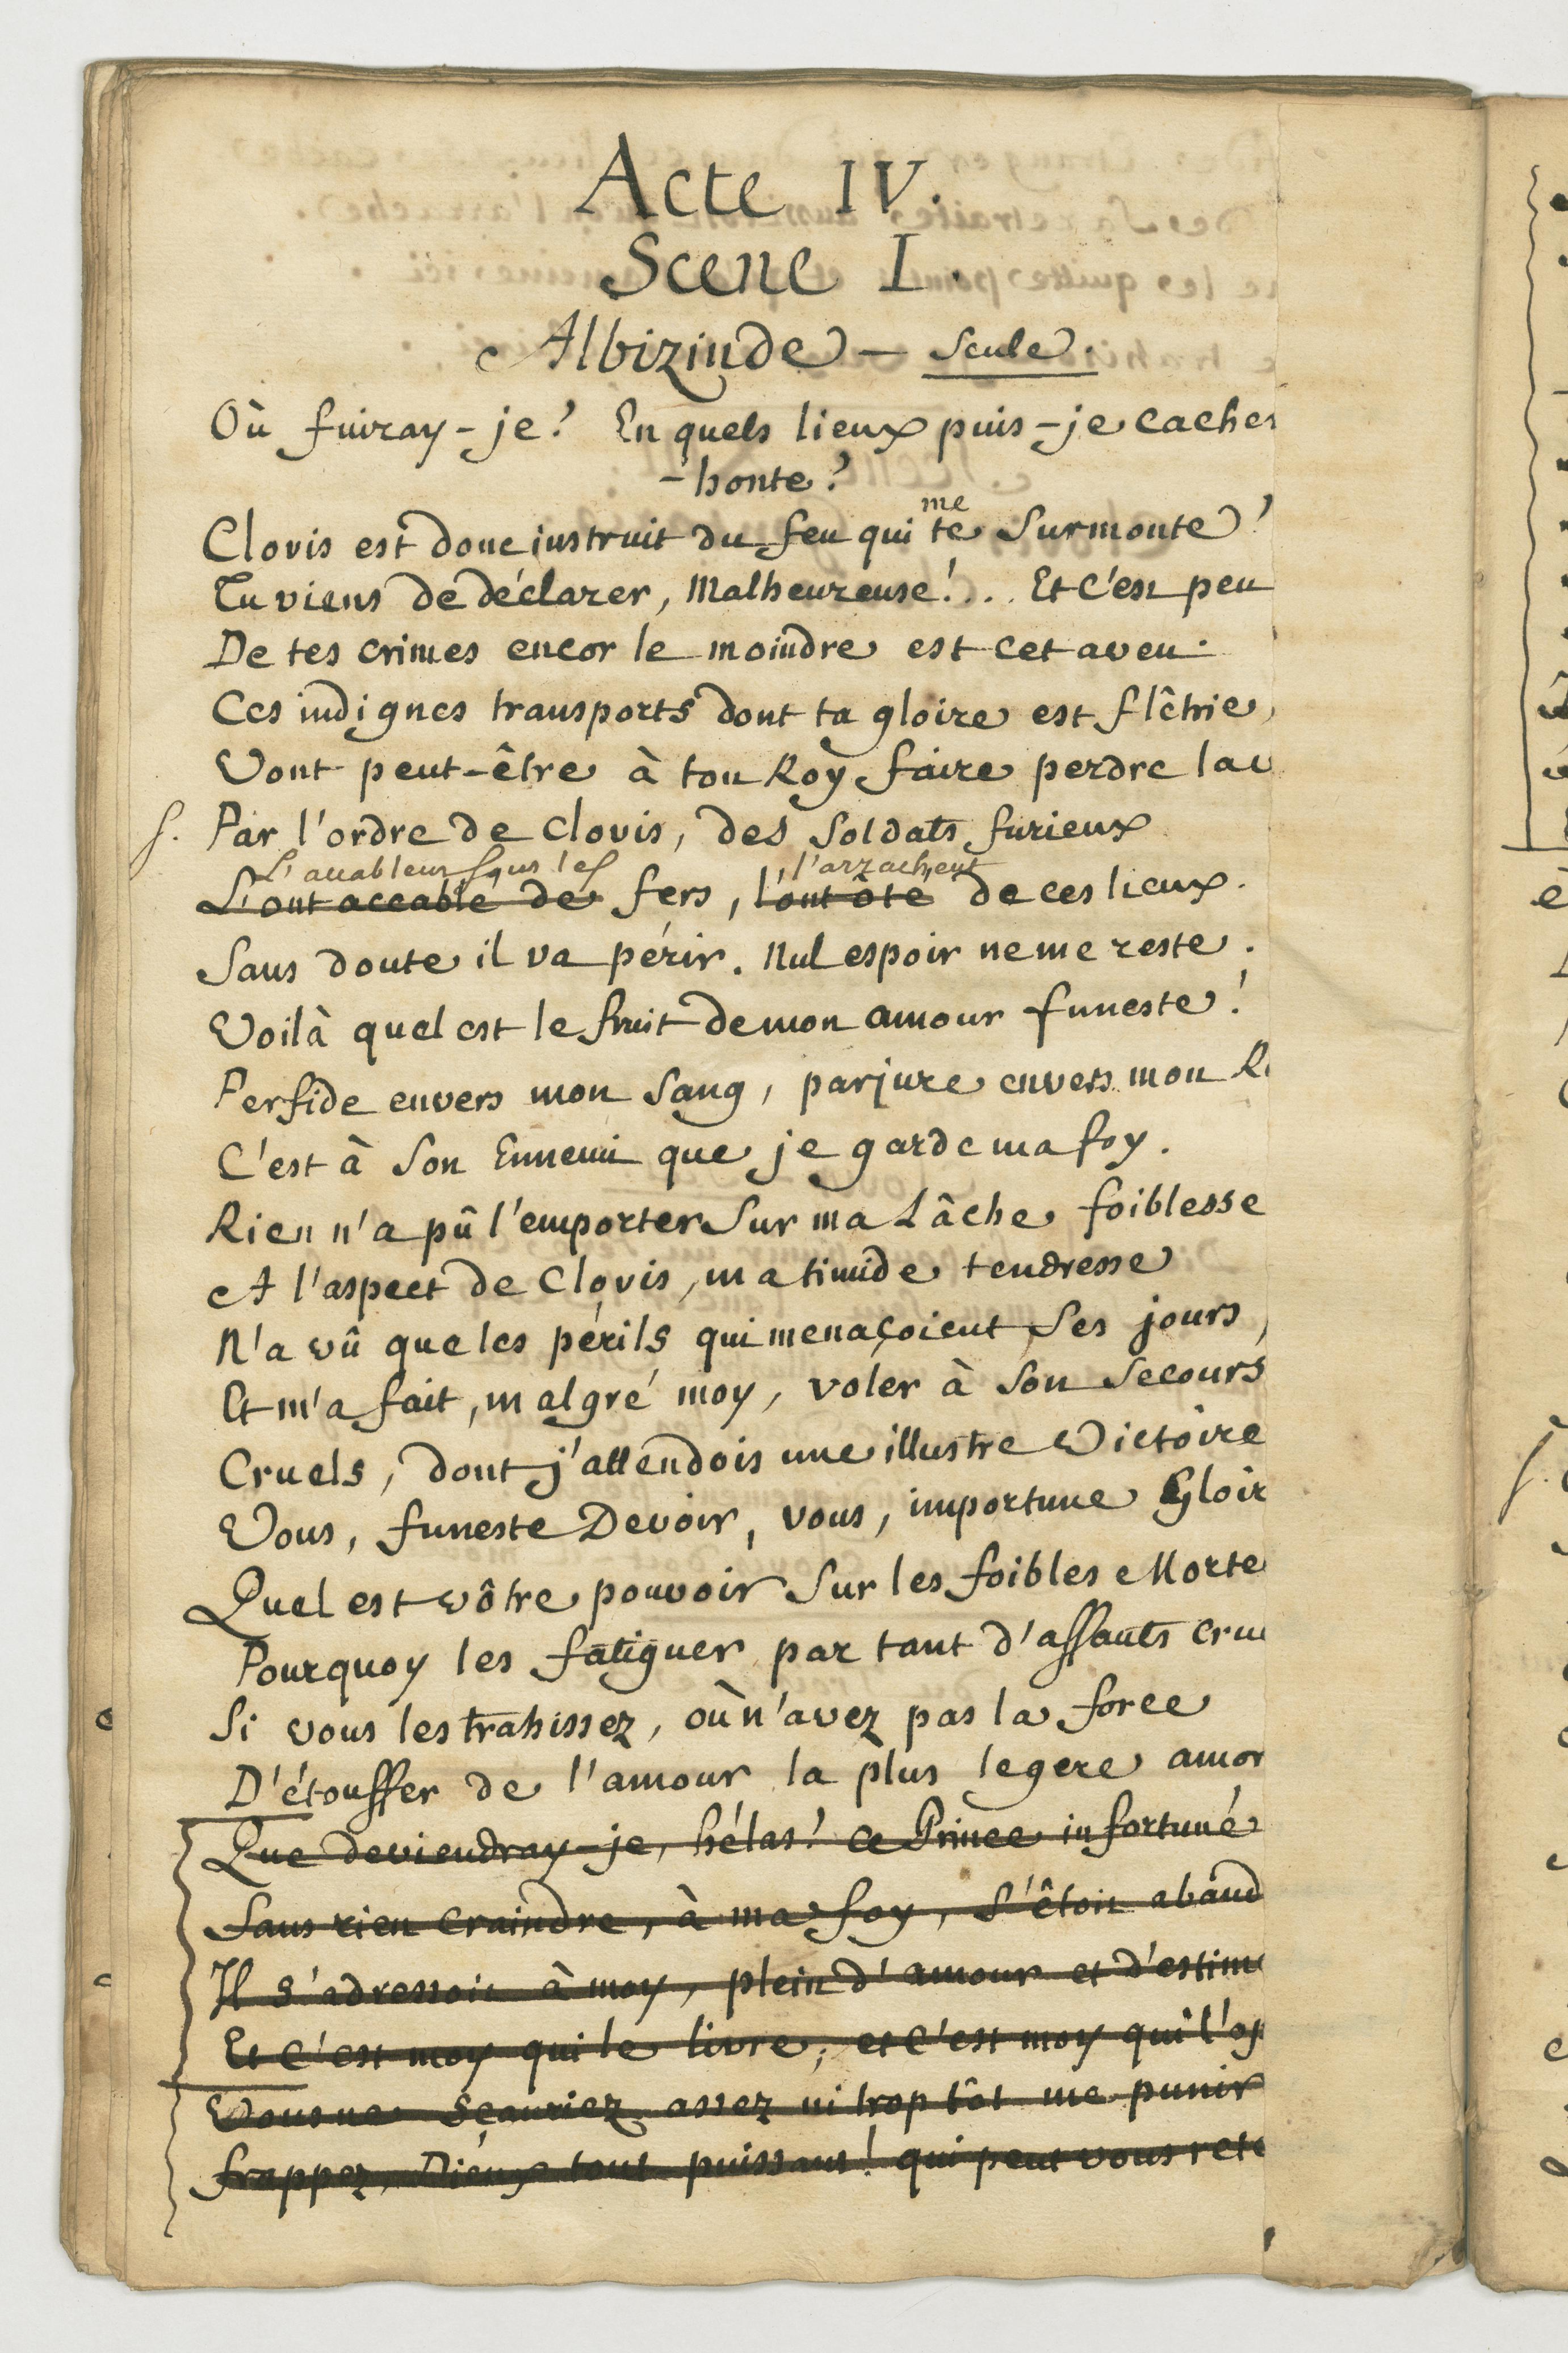 Acte IV.
Scene I.
Albizinde — seule.
Où fuiray-je? En quels lieux puis-je cacher
-honte?
me
Clovis est donc instruit du feu qui te surmonte?
Tu viens de déclarer, Malheureuse!... Et c'est peu
De tes crimes encor le moindre est cet aveu.
Ces indignes transports dont ta gloire est flêtrie,
Vont peut-être à ton Roy faire perdre la v
f. Par l'ordre de Clovis, des Soldats furieux
L'accablent sous les l'arrachent
L'ont accablé de fers, l'ont ôté de ces lieux.
Sans doute il va périr. Nul espoir ne me reste.
Voilà quel est le fruit de mon amour funeste!
Perfide envers mon Sang, parjure envers mon R
C'est à son Ennemi que je garde ma foy.
Rien n'a pû l'emporter sur ma Lâche foiblesse
A l'aspect de Clovis, ma timide tendresse
N'a vû que les périls qui menaçoient ses jours,
Et m'a fait, malgré moy, voler à son secours
Cruels, dont j'attendois une illustre Victoire
Vous, funeste Devoir, vous, importune Gloir
Quel est vôtre pouvoir sur les foibles Morte
Pourquoy les fatiguer par tant d'assauts cru
Si vous les trahissez, où n'avez pas la force
D'étouffer de l'amour la plus legere amor
Que deviendray-je, hélas! Ce Prince infortuné
Sans rien craindre, à ma foy, s'étoit aband
Il s'adressoit à moy, plein d'amour et d'estime
Et c'est moy qui le livre, et c'est moy qui l'op
Vous ne sçauriez assez ni trop tôt me punir
frappez, Dieux tout puissans! qui peut vous rete